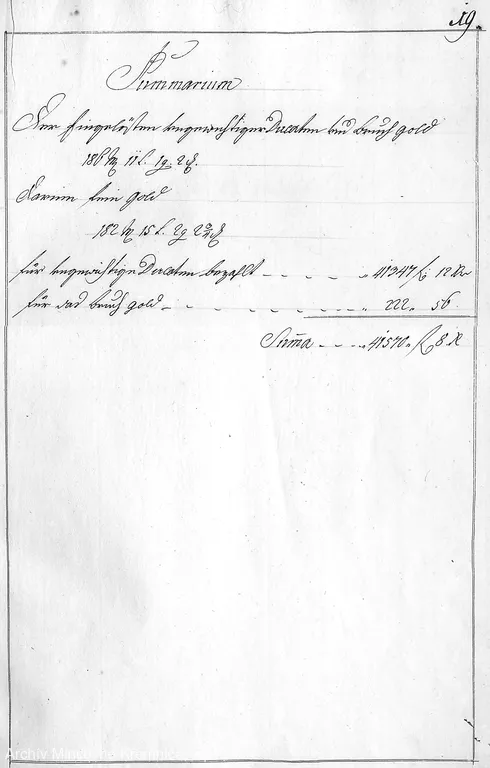 19.
Summarium
Der Eingelösten ungewichtiger Ducaten und bruch gold
186 11 l. 1 q. 2 d.
Darinn fein gold
182 15 l. 2 q 2 d
für ungewichtige Ducaten bezahlt - - - - „ 41347 f: 12 kr
für das bruch gold - - - - - - - „ 222 „ 56
Suma - - - „ 41570 „ f 8 k
Archiv Mi